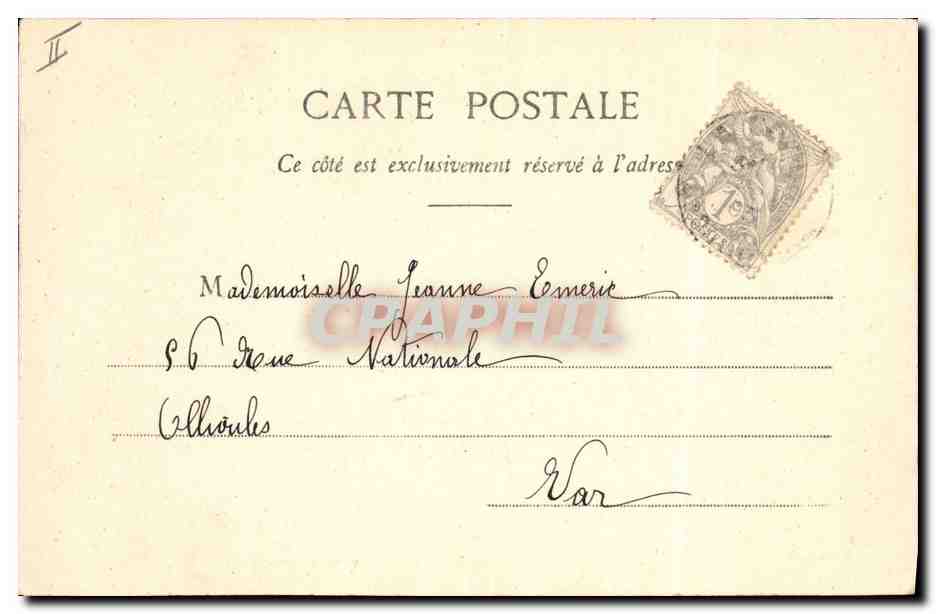 II
CARTE POSTALE
Ce côté est exclusivement réservé à l'adres
1c
POSTES
Mademoiselle Jeanne Emeric
CPAPHIL
56 Rue Nationale
Ollioules
Var